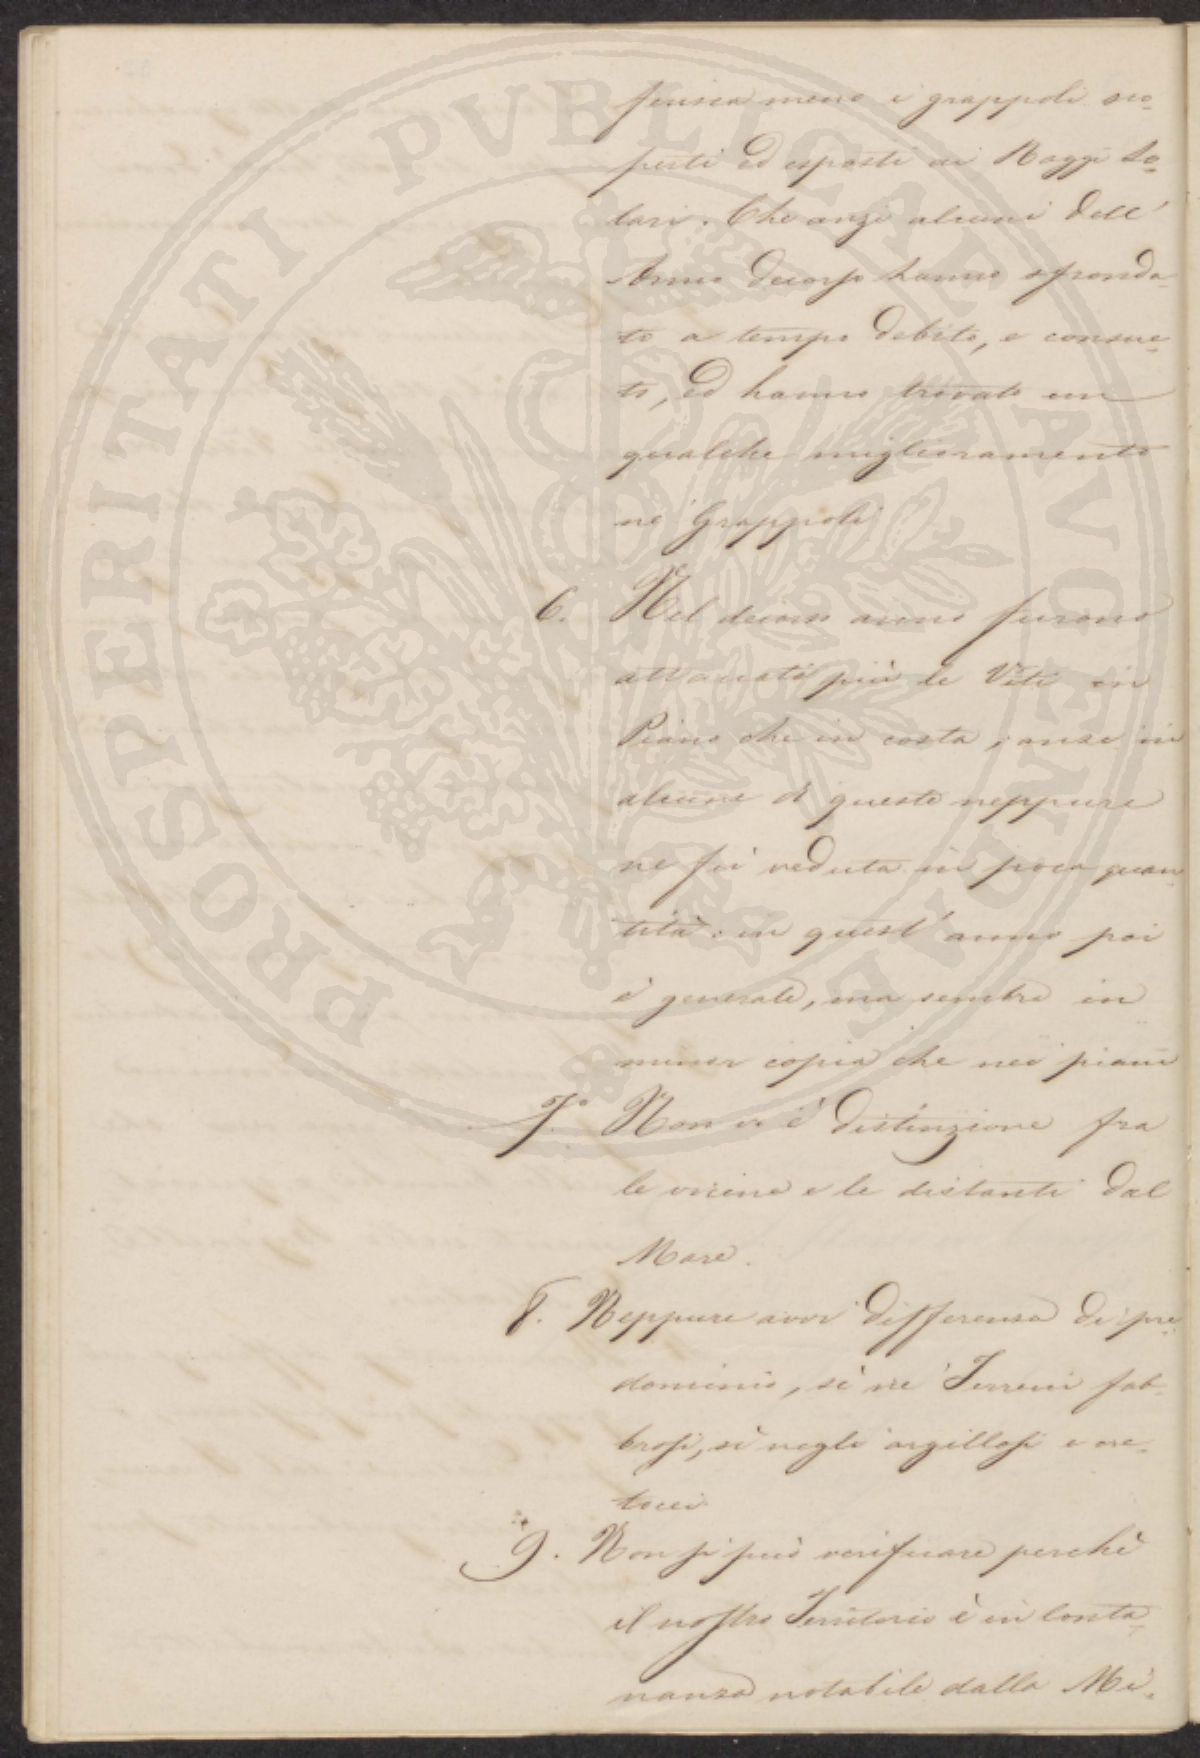 fensca meno i grappoli sco-
perti ed esposti ai Raggi So-
lari. Che anzi alcuni dell'
Anno decorso hanno sfronda-
to a tempo debito, e consue-
to, ed hanno trovato un
qualche miglioramento
ne' Grappoli
6. Nel decorso anno furono
attaccate più le Viti in
Piano che in costa, anzi in
alcune di queste neppure
ne fù veduta in poca quan-
tità: in quest'anno poi
è generale, ma sembra in
minor copia che nei piani
7. Non vi è distinzione fra
le vicine e le distanti dal
Mare.
8. Neppure avvi differenza di pre-
dominio, sì ne' Terreni sab-
biosi, sì negli argillosi e cre-
tacei
9. Non si può verificare perchè
il nostro Territorio è in lonta-
nanza notabile dalla Mi-
PROSPERITATI PVBLICAE AVGENDAE